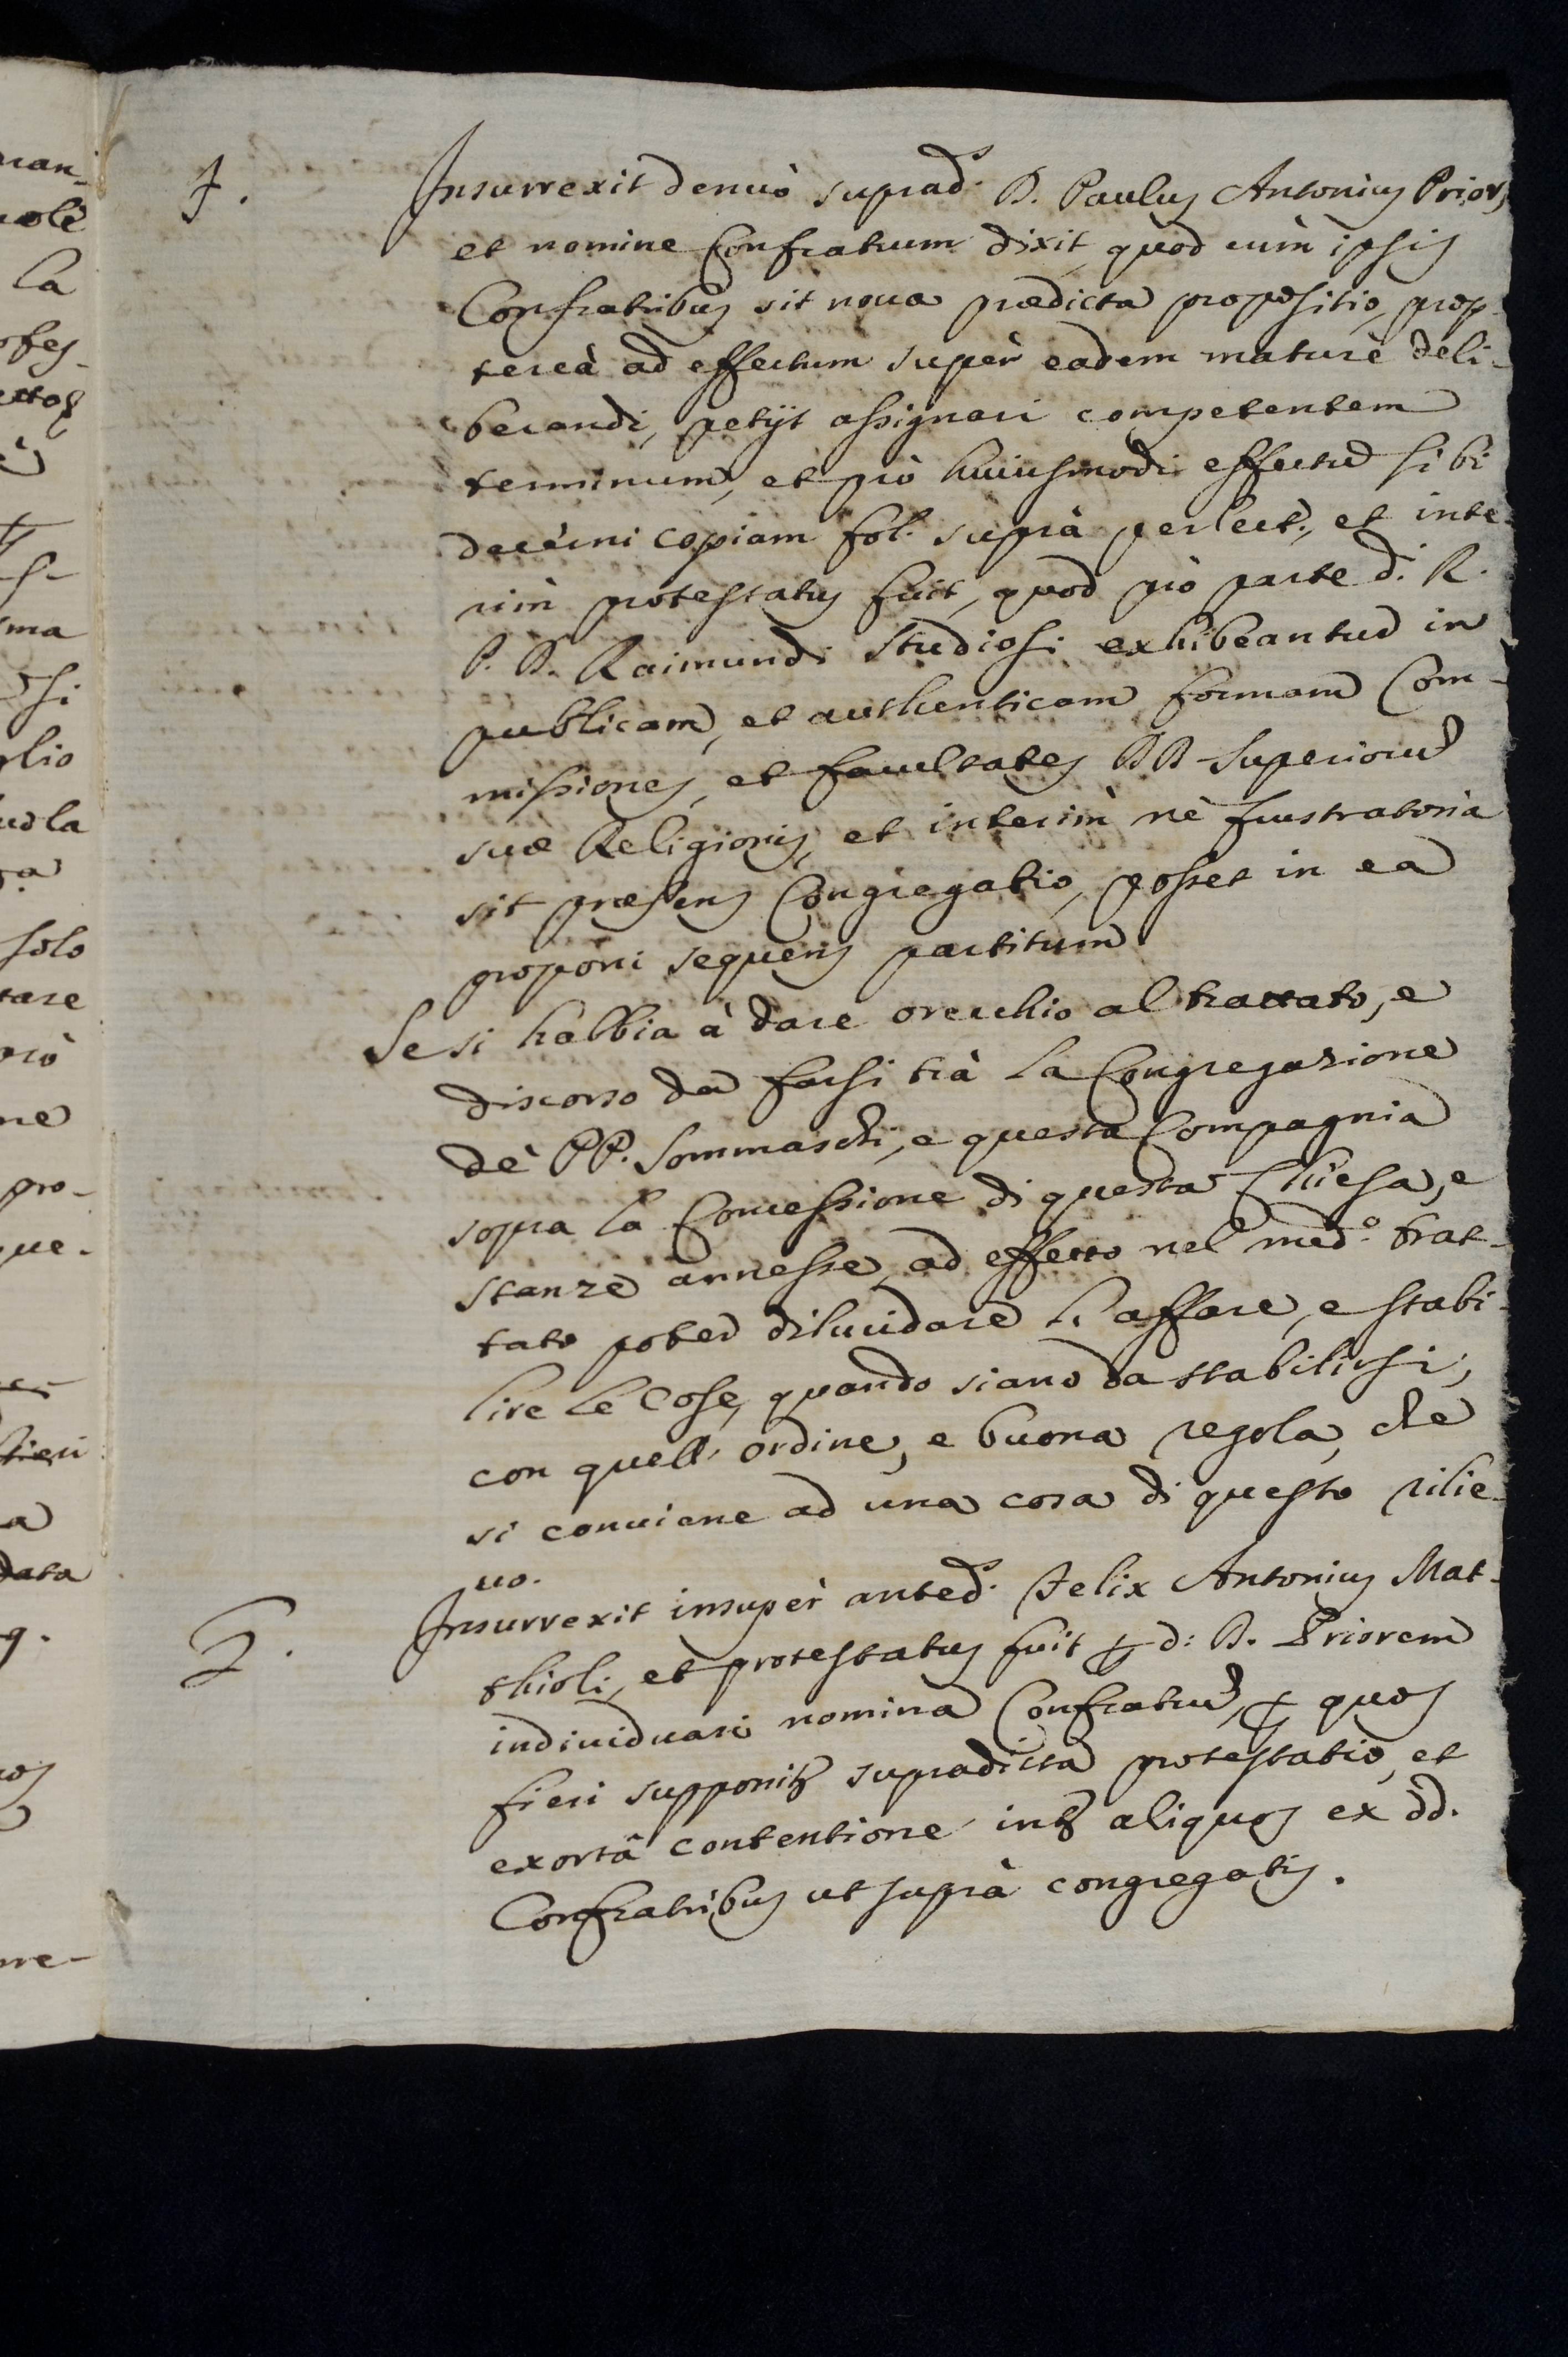 F. Insurrexit denuò suprad.s D. Paulus Antonius Prior,
et nomine Confratrum dixit, quod cùm ipsis
Confratribus sit noua prædicta propositio, prop-
tereà ad effectum supèr eadem maturè deli-
berandi, petijt assignari competentem
terminum, et prò huiusmodi effectu sibi
decèrni copiam fol. suprà perlect., et inte-
rim protestatus fuit, quod prò parte d. R.
P. D. Raimundi Studiosi exhibeantur in
publicam, et authenticam formam Com-
missiones, et facultates DD Superiorum
suæ Religionis, et interim nè frustratoria
sit præsens Congregatio, posset in ea
proponi sequens partitum
Se si habbia à dare orecchio al trattato, e
discorso da farsi trà la Congregazione
dè PP. Sommaschi, e questa Compagnia
sopra la Concessione di questa Chiesa, e
stanze annesse, ad effetto nel med.o trat-
tato poter dilucidare l'affare, e stabi-
lire le Cose, quando siano da stabilirsi,
con quell'ordine, e buona regola, che
si conuiene ad una cosa di questo rilie-
uo.
G. Insurrexit insupèr anted.s Felix Antonius Mat-
thioli, et protestatus fuit ꝑ d: D. Priorem
indiuiduari nomina Confratrũ, ꝑ quos
fieri supponitr supradicta protestatio, et
exortâ contentione intr aliquos ex dd.
Confratribus ut suprà congregatis.
man-
uolè
la
ofes-
ettor
ma
si
glio
la
solo
tare
rò
ne
pro-
que-
a
data
q.
me-